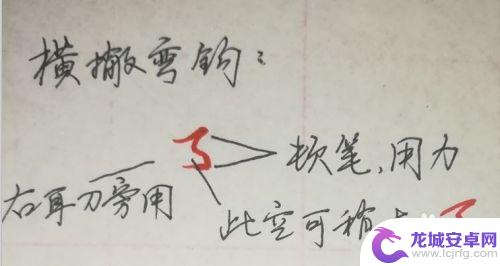 横撇弯钩：
顿笔，用力
右耳刀旁用
此空可稍大
龙城安卓网
www.lcjrfg.com